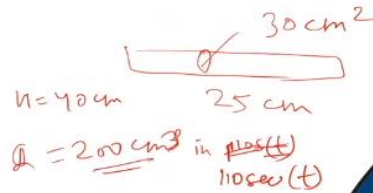 30 cm²
h = 40 cm
25 cm
Q = 200 cm³ in
110 sec (t)